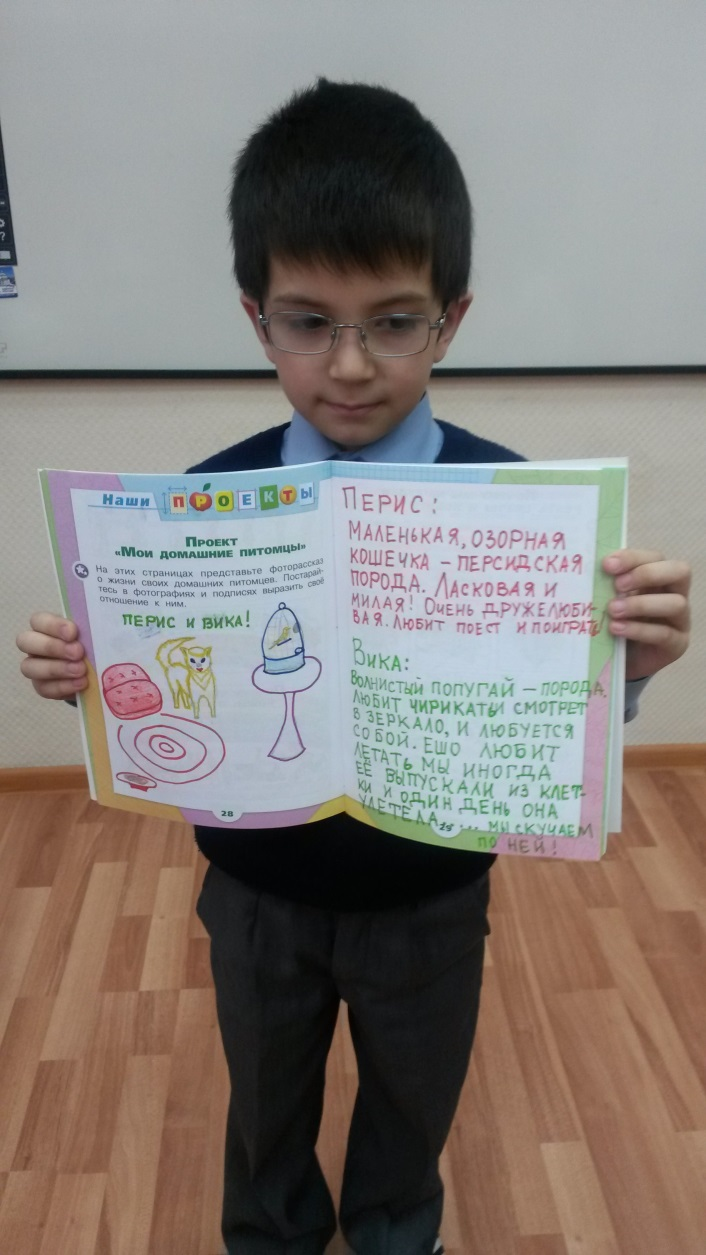 Наши ПРОЕКТЫ
Проект
«Мои домашние питомцы»
На этих страницах представьте фоторассказ
о жизни своих домашних питомцев. Постарай-
тесь в фотографиях и подписях выразить своё
отношение к ним.
ПЕРИС И ВИКА!
28
ПЕРИС:
МАЛЕНЬКАЯ, ОЗОРНАЯ
КОШЕЧКА – ПЕРСИДСКАЯ
ПОРОДА. ЛАСКОВАЯ И
МИЛАЯ! ОЧЕНЬ ДРУЖЕЛЮБИ-
ВАЯ. ЛЮБИТ ПОЕСТ И ПОИГРАТЬ!
ВИКА:
ВОЛНИСТЫЙ ПОПУГАЙ – ПОРОДА.
ЛЮБИТ ЧИРИКАТЬ И СМОТРЕТ
В ЗЕРКАЛО, И ЛЮБУЕТСЯ
СОБОЙ. ЕШО ЛЮБИТ
ЛЕТАТЬ МЫ ИНОГДА
ЕЁ ВЫПУСКАЛИ ИЗ КЛЕТ-
КИ И ОДИН ДЕНЬ ОНА
УЛЕТЕЛА.... МЫ СКУЧАЕМ
ПО НЕЙ!